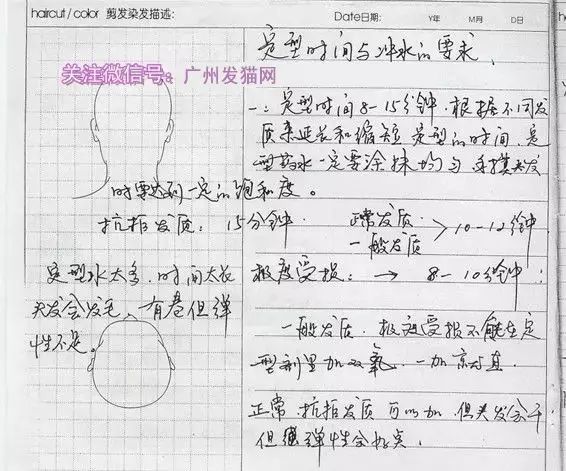 haircut / color 剪发染发描述:
Date日期: Y年 M月 D日
关注微信号。广州发猫网
定型时间与冲水的要求.
一: 定型时间8-15分钟. 根据不同发
质来延长和缩短 定型的时间, 定
型药水一定要涂抹均匀
时要达到一定的饱和度。
抗拒发质: 15分钟. 正常发质. 一般发质 > 10-12分钟
极度受损: → 8-10分钟
定型水太多, 时间太长
头发会发毛, 有卷但弹
性不足。
一般发质. 极度受损不能在定
型剂里加双氧. 一加
正常. 抗拒发质可以加. 但头发会干
但 弹性会 点.